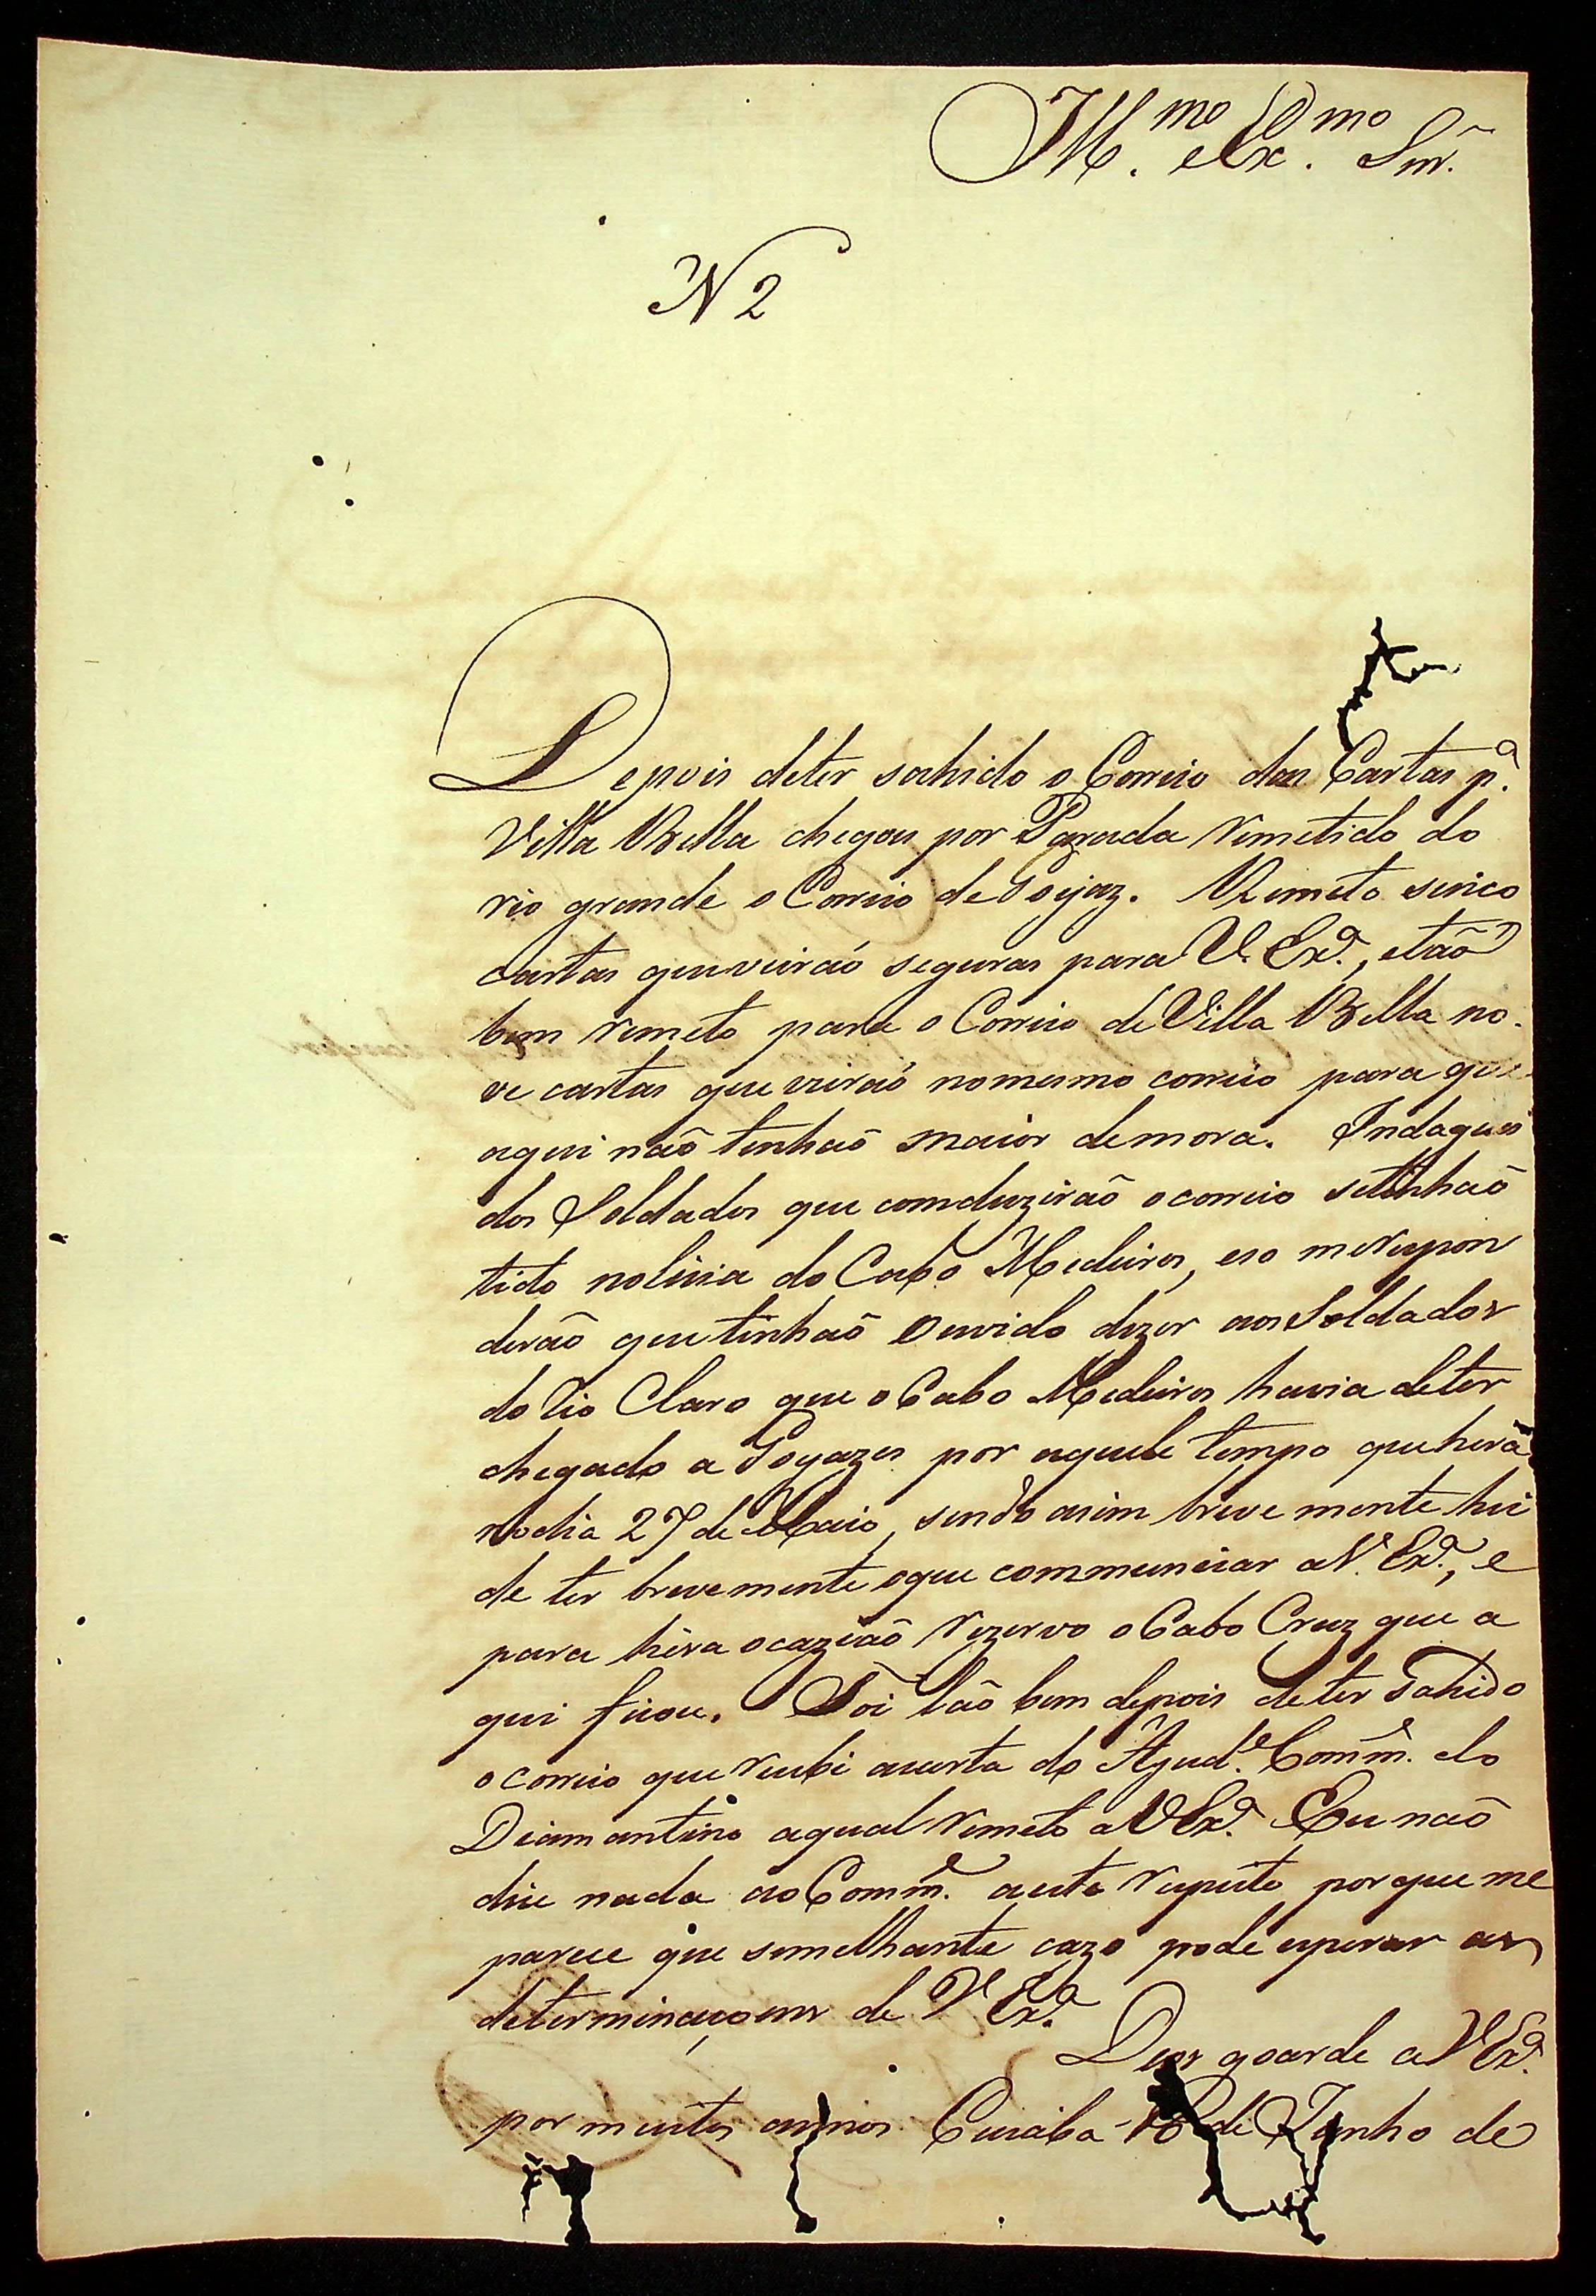 Ill.mo eEx.mo Snr.
N 2
Depois deter sahido o Correio das Cartas p.a
Villa Bella chegou por Parada remetido do
rio grande o Correio de Goyaz. Remeto sinco
cartas que vieraõ seguras para V. Ex.a, etaõ
bem remeto para o Correio de Villa Bella no-
ve cartas que vieraõ nomesmo correio para que
aqui naõ tenhaõ maior demora. Indaguei
dos Soldados que comduziraõ ocorreio setinhaõ
tido noticia do Cabo Medeiros, eso merespon
deraõ quetinhaõ ouvido dizer aos Soldados
do Rio Claro que o Cabo Medeiros havia deter
chegado a Goyazes por aquele tempo quehera
nodia 27 de Maio, sendo asim breve mente hei
de ter brevemente oque communicar aV. Ex.a, e
para hesa ocaziaõ rezervo o Cabo Cruz que a
qui ficou. Foi taõ bem depois deter sahido
ocorreio que recebi acarta do Ajud.e Comm.e do
Diamantino aqual remeto aVEx.a Eu naõ
dise nada ao Comm.e aeste respeito porque me
parece que semelhante cazo pode esperar as
determinaçoens de V Ex.a
Deos goarde a V Ex.a
por muitos annos Cuiaba de Junho de